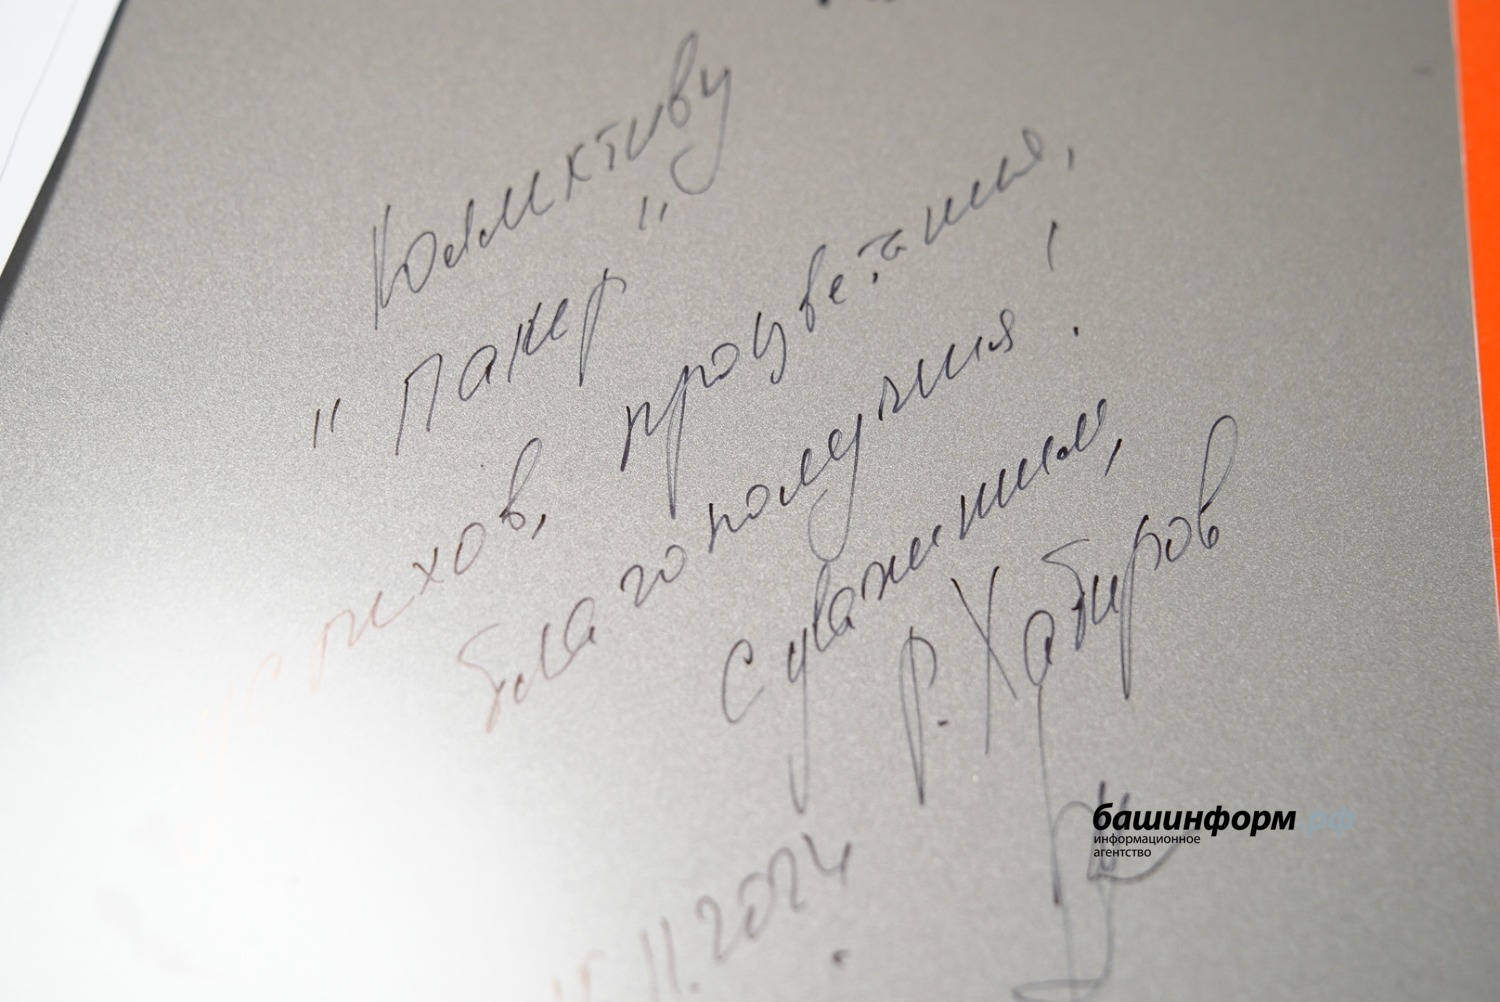 Коллективу
"Пакер"
успехов, процветания,
благополучия!
С уважением,
Р. Хабиров
11.2024
башинформ.рф
информационное
агентство